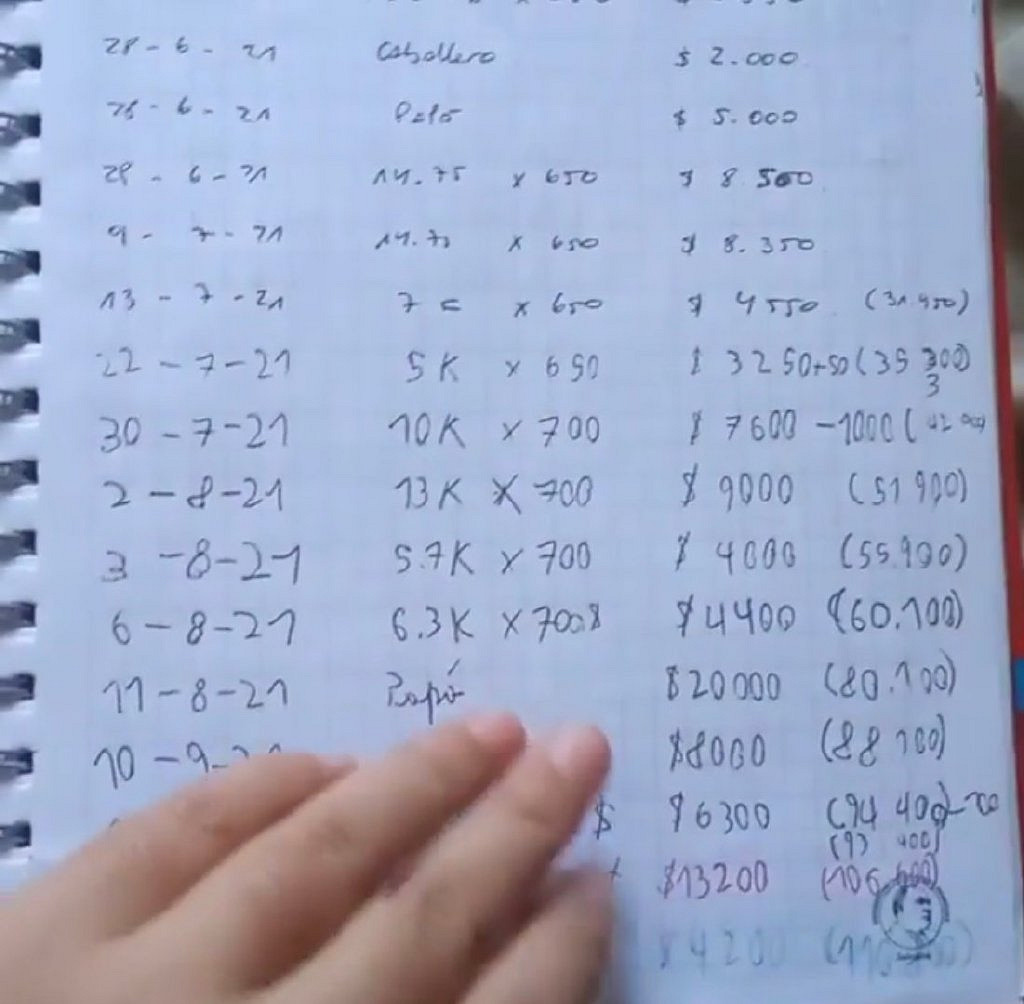 28 - 6 - 21 Caballero $ 2.000
28 - 6 - 21 $ 5.000
29 - 6 - 21 14.75 x 650 $ 8.500
9 - 7 - 21 x 650 $ 8.350
13 - 7 - 21 7 x 650 $ 4550 (31.450)
22 - 7 - 21 5K x 650 $ 3250+50 (35 300)
3
30 - 7 - 21 10K x 700 $ 7600 - 1000 (
2 - 8 - 21 13K x 700 $ 9000 (51 900)
3 - 8 - 21 5.7K x 700 $ 4000 (55.900)
6 - 8 - 21 6.3K x 700 $ 4400 (60.100)
11 - 8 - 21 Papá $ 20000 (80.100)
10 - 9 - $8000 (88 100)
$ $6300 (94 400)
(93 400)
$13200 (106 600)
$4200